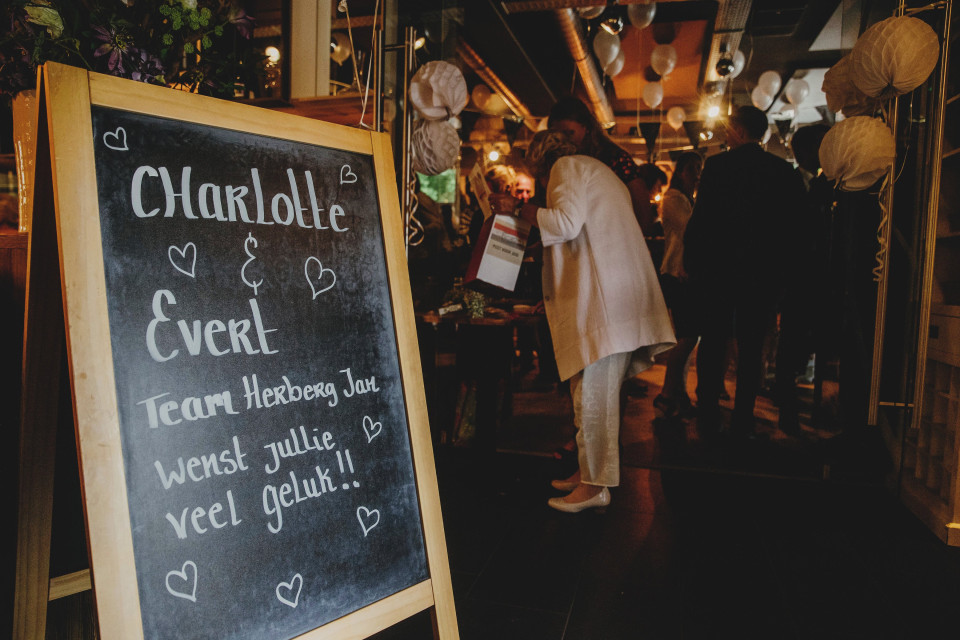 CHarLotte
&
Evert
Team Herberg Jan
wenst jullie
veel geluk!!